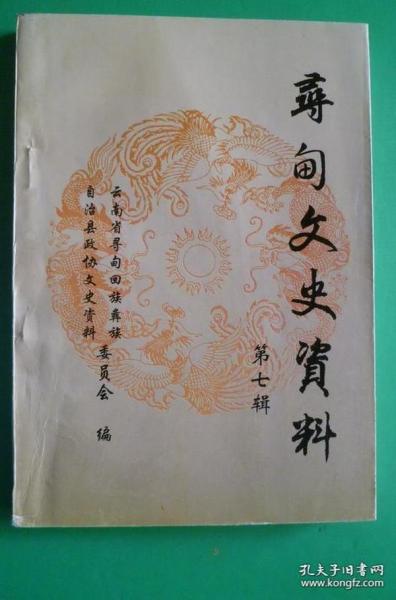 尋甸文史資料
第七辑
云南省寻甸回族彝族
自治县政协文史资料
委员会 编
孔夫子旧书网
www.kongfz.com